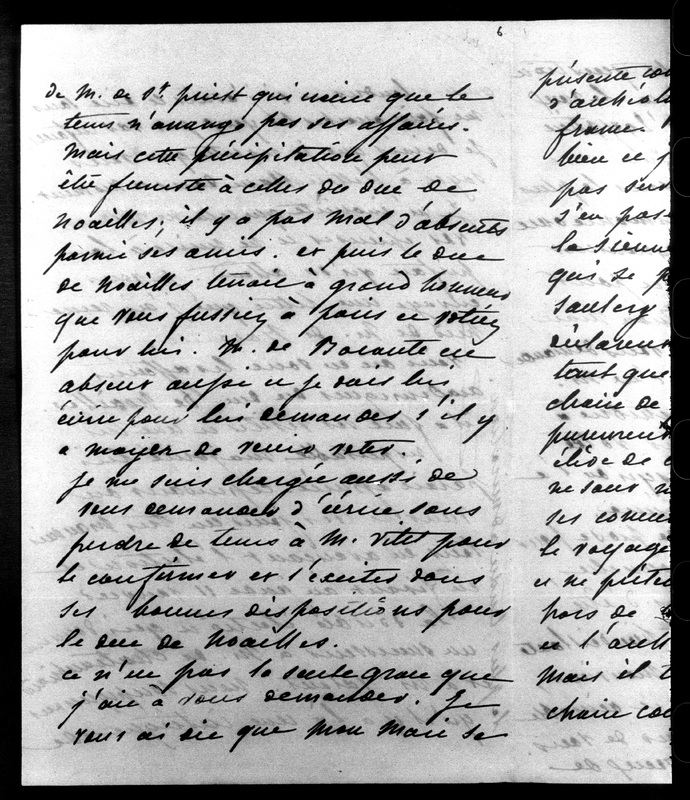 6
de M. de St priest qui craint que le
tems n'arrange pas ses affaires.
mais cette précipitation peut
être funeste à celles du duc de
Noailles; il y a pas mal d'absents
parmi ses amis. et puis le duc
de Noailles tenait à grand honneur
que vous fussiez à paris et votiez
pour lui. M. de Barante est
absent aussi et je dois lui
écrire pour lui demander s'il y
a moyen de venir voter.
je me suis chargée aussi de
vous demander d'écrire sans
perdre de tems à M. Vitet pour
le confirmer et l'exciter dans
ses bonnes dispositions pour
le duc de Noailles.
ce n'est pas la seule grace que
j'aie à vous demander. Je
vous ai dit que mon mari se
présente
d'archéol
france.
bien ce j
pas serv
s'en pas
la sienne
qui se p
saulcy
déclarent
tant que
chaire de
purement
élève de
ne sous
ses
le voyage
et ne
hors de
et l'arch
mais il
chaire